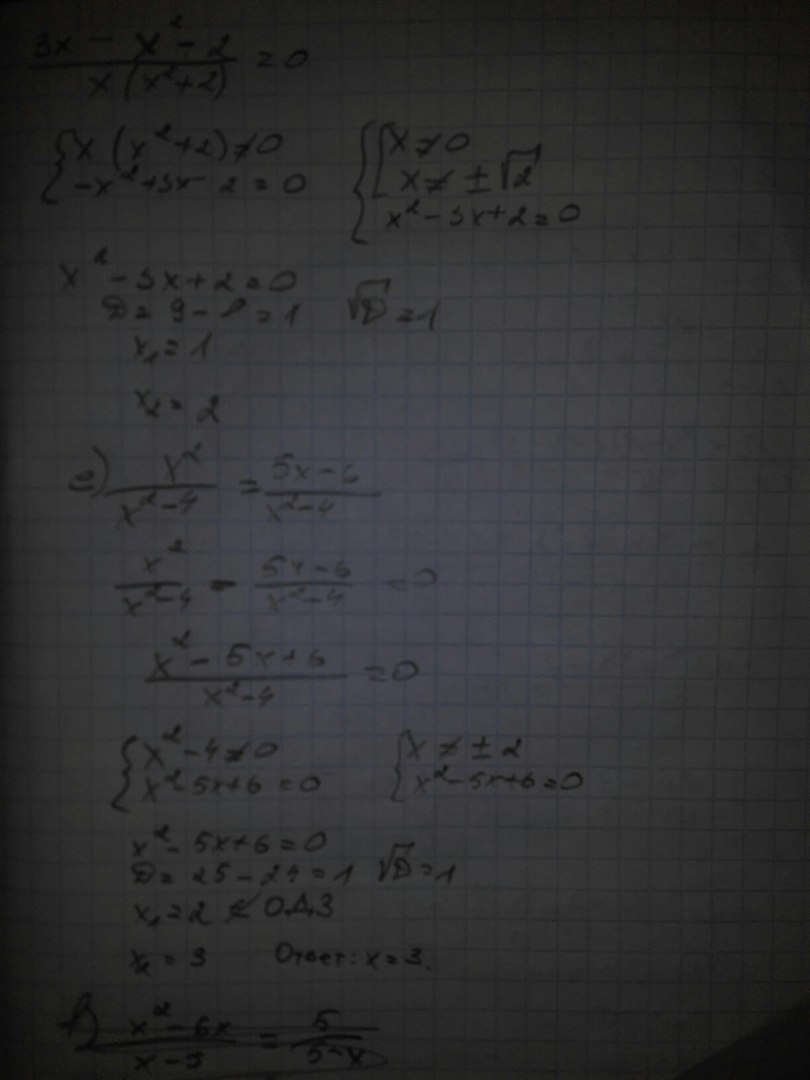 3x - x² - 2 / x(x²+2) = 0
{ x(x²+2) ≠ 0   { [ x ≠ 0
{ -x²+3x-2 = 0   { [ x ≠ ±√2
{ x²-3x+2=0
x² - 3x + 2 = 0
D = 9 - 8 = 1   √D = 1
x₁ = 1
x₂ = 2
e) x² / x²-4 = 5x-6 / x²-4
x² / x²-4 - 5x-6 / x²-4 = 0
x² - 5x + 6 / x²-4 = 0
{ x² - 4 ≠ 0   { x ≠ ± 2
{ x² 5x+6 = 0   { x²-5x+6=0
x² - 5x+6 = 0
D = 25 - 24 = 1   √D = 1
x₁ = 2 ∉ ОДЗ
x₂ = 3   Ответ: x = 3.
x² - 6x / x-5 = 5 / 5-x